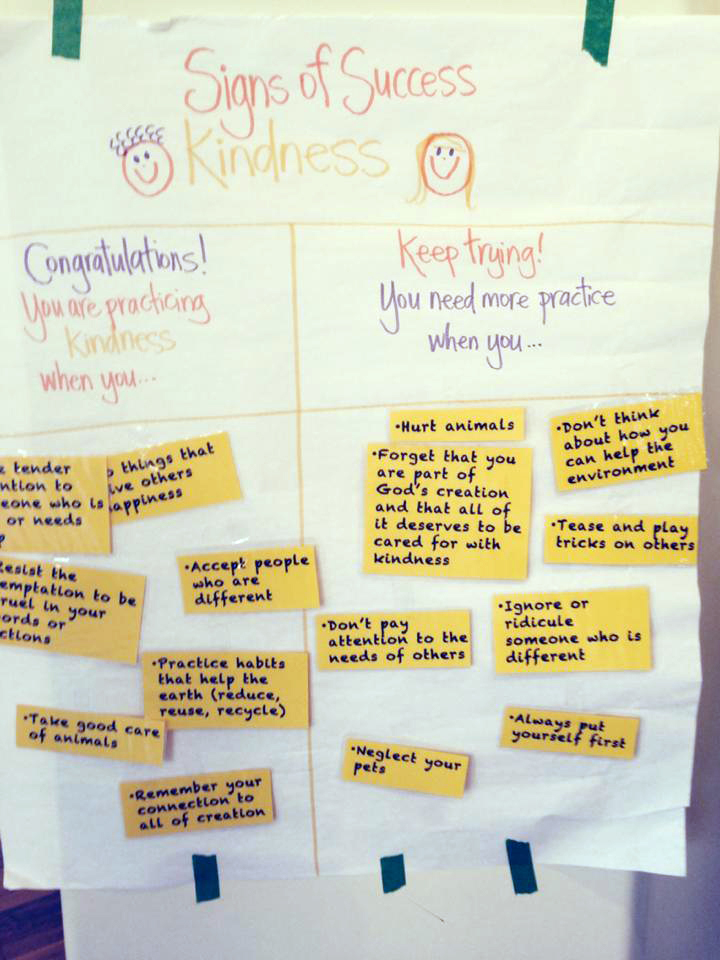 Signs of Success
Kindness
Congratulations!
You are practicing
Kindness
when you...
tender
to
who is
or needs
things that
others
the
to be
in your
or
•Accept people
who are
different
•Practice habits
that help the
earth (reduce,
reuse, recycle)
•Take good care
of animals
•Remember your
connection to
all of creation
Keep trying!
You need more practice
when you...
•Hurt animals
•Don't think
about how you
can help the
environment
•Forget that you
are part of
God's creation
and that all of
it deserves to be
cared for with
kindness
•Tease and play
tricks on others
•Don't pay
attention to the
needs of others
•Ignore or
ridicule
someone who is
different
•Always put
yourself first
•Neglect your
pets